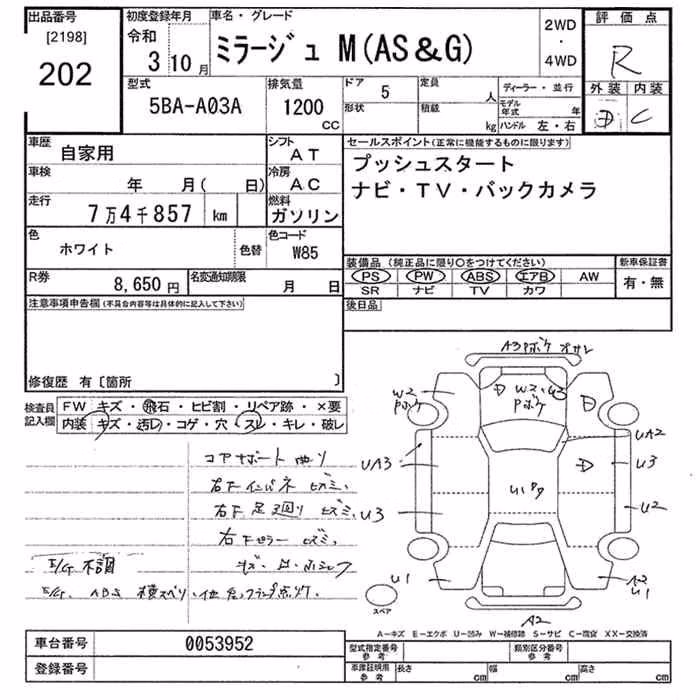 出品番号
[2198]
202
初度登録年月
令和
3 10月
車名・グレード
ミラージュ M(AS&G)
2WD
・
4WD
評価点
R
外装 内装
C
型式
5BA-A03A
排気量
1200
CC
ドア
5
形状
定員
人
積載
kg
ディーラー・並行
モデル年式 年
ハンドル 左・右
車歴
自家用
シフト
AT
車検
年 月( 日)
冷房
AC
走行
7万4千857 km
燃料
ガソリン
色
ホワイト
色替
色コード
W85
R券
8,650円
名変通知期限
月 日
セールスポイント(正常に機能するものに限ります)
プッシュスタート
ナビ・TV・バックカメラ
装備品 (純正品に限り○をつけてください)
PS PW ABS エアB AW
SR ナビ TV カワ
新車保証書
有・無
後日品
注意事項申告欄(不具合内容等は具体的に記入して下さい)
修復歴 有〔箇所 〕
検査員
記入欄
FW キズ・飛石・ヒビ割・リペア跡・×要
内装 キズ・汚レ・コゲ・穴・スレ・キレ・破レ
コアサポート曲り
右F インパネ ヒズミ、
右F 足廻り ヒズミ、
右Fピラー ヒズミ、
E/G 不調
E/G、ABS 横スベリ、
A3 Pボケ
W2
Pボケ
W2・U3
Pボケ
UA2
UA3
U3
U3
U2
U1
U1
A2
U1
A2
スペア
A-キズ E-エクボ U-凹み W-補修跡 S-サビ C-腐食 XX-交換済
車台番号
0053952
登録番号
型式指定番号
参考
類別区分番号
参考
車庫証明用
参考
長さ cm 幅 cm 高さ cm